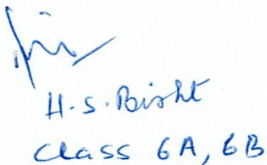 H.S. Bisht
Class 6A, 6B